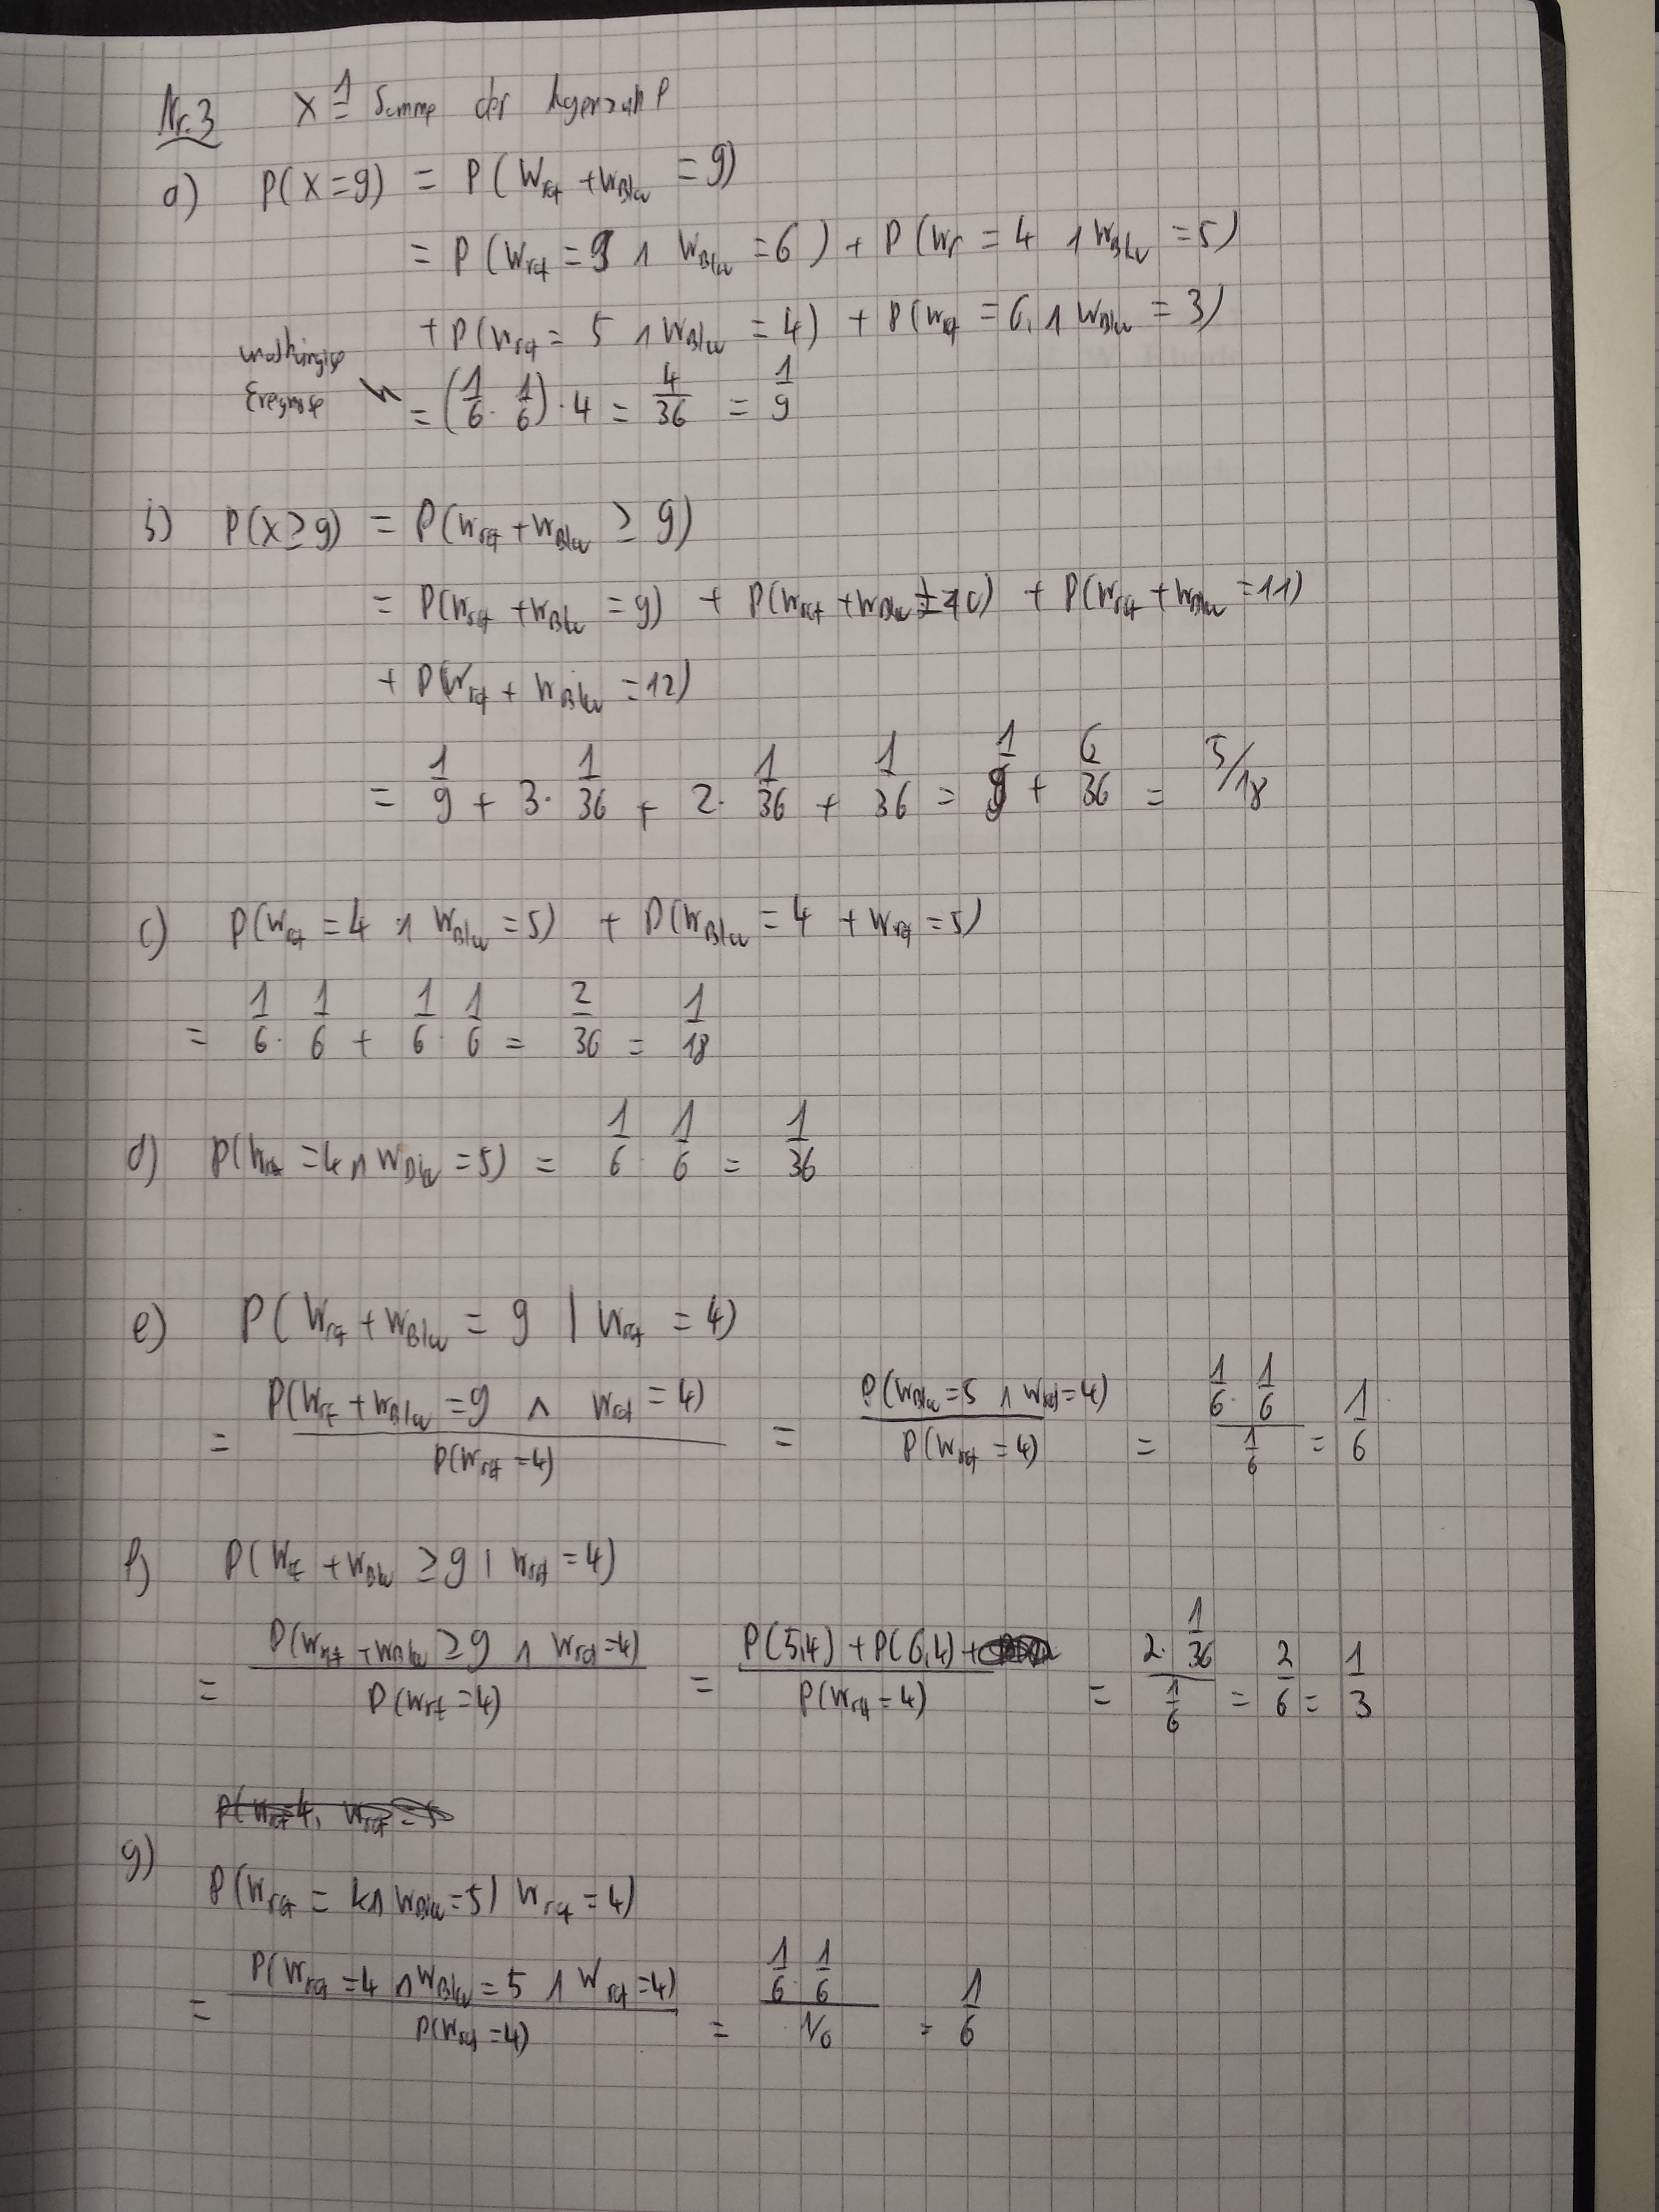 Nr. 3 X ≙ Summe der Augenzahl
a) P(X=9) = P(W_rot + W_Blau = 9)
= P(W_rot = 3 ∧ W_Blau = 6) + P(W_r = 4 ∧ W_Blau = 5)
+ P(W_rot = 5 ∧ W_Blau = 4) + P(W_rot = 6 ∧ W_Blau = 3)
unabhängige
Ereignisse
= (1/6 · 1/6) · 4 = 4/36 = 1/9
b) P(X ≥ 9) = P(W_rot + W_Blau ≥ 9)
= P(W_rot + W_Blau = 9) + P(W_rot + W_Blau = 10) + P(W_rot + W_Blau = 11)
+ P(W_rot + W_Blau = 12)
= 1/9 + 3 · 1/36 + 2 · 1/36 + 1/36 = 1/9 + 6/36 = 5/18
c) P(W_rot = 4 ∧ W_Blau = 5) + P(W_Blau = 4 + W_rot = 5)
= 1/6 · 1/6 + 1/6 · 1/6 = 2/36 = 1/18
d) P(W_rot = 4 ∧ W_Blau = 5) = 1/6 · 1/6 = 1/36
e) P(W_rot + W_Blau = 9 | W_rot = 4)
= P(W_rot + W_Blau = 9 ∧ W_rot = 4) / P(W_rot = 4) = P(W_Blau = 5 ∧ W_rot = 4) / P(W_rot = 4) = (1/6 · 1/6) / (1/6) = 1/6
f) P(W_rot + W_Blau ≥ 9 | W_rot = 4)
= P(W_rot + W_Blau ≥ 9 ∧ W_rot = 4) / P(W_rot = 4) = (P(5,4) + P(6,4) +) / P(W_rot = 4) = (2 · 1/36) / (1/6) = 2/6 = 1/3
g)
P(W_rot = 4 ∧ W_Blau = 5 | W_rot = 4)
= P(W_rot = 4 ∧ W_Blau = 5 ∧ W_rot = 4) / P(W_rot = 4) = (1/6 · 1/6) / (1/6) = 1/6